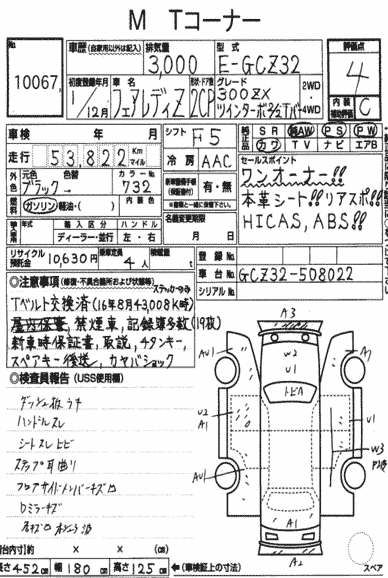 M Tコーナー
No. 車歴 (自家用以外は記入) 排気量 型式 評価点
10067 3,000 E-GCZ32 4
初度登録年月 車名 ドア数 グレード 2WD
1/12月 フェアレディZ 2CP 300ZX ツインターボ2/2Tバー 4WD
内装 補助評価 C
車検 年 月 シフト F5 SR AW PS PW
カワ TV ナビ エアB
走行 53,822 Km マイル 冷房 AAC セールスポイント
外色 元色 色替 カラーNo. ワンオーナー!!
ブラック→ 732 有・無 本革シート!! リアスポ!!
燃料 ガソリン・軽油・( ) 内装色 HICAS, ABS!!
輸入区分 ハンドル 名義変更期限
ディーラー・並行 左・右 月 日
リサイクル預託金 10,630円 乗車定員 4人 積載量 t 登録No.
車台No. GCZ32-508022
シリアルNo.
◎注意事項 (修復・不具合箇所および状態等)
Tベルト交換済(16年8月43,008K時)
屋内保管, 禁煙車, 記録簿多数(19枚)
新車時保証書, 取説, 4タンキー,
スペアキー後送, カヤバショック
◎検査員報告 (USS使用欄)
ダッシュ板ウキ
ハンドルスレ
シートスレヒビ
ステップ耳曲り
フロアサイドメンバーキズ凹
Dミラーキズ
A3
AU1
W2
U1
A1
トビA
U2
A1
U1
W3
P決
AU1
A1
A2
荷台内寸 約 × × (cm)
長さ 452 cm 幅 180 cm 高さ 125 cm ←(車検証上の寸法)
スペア